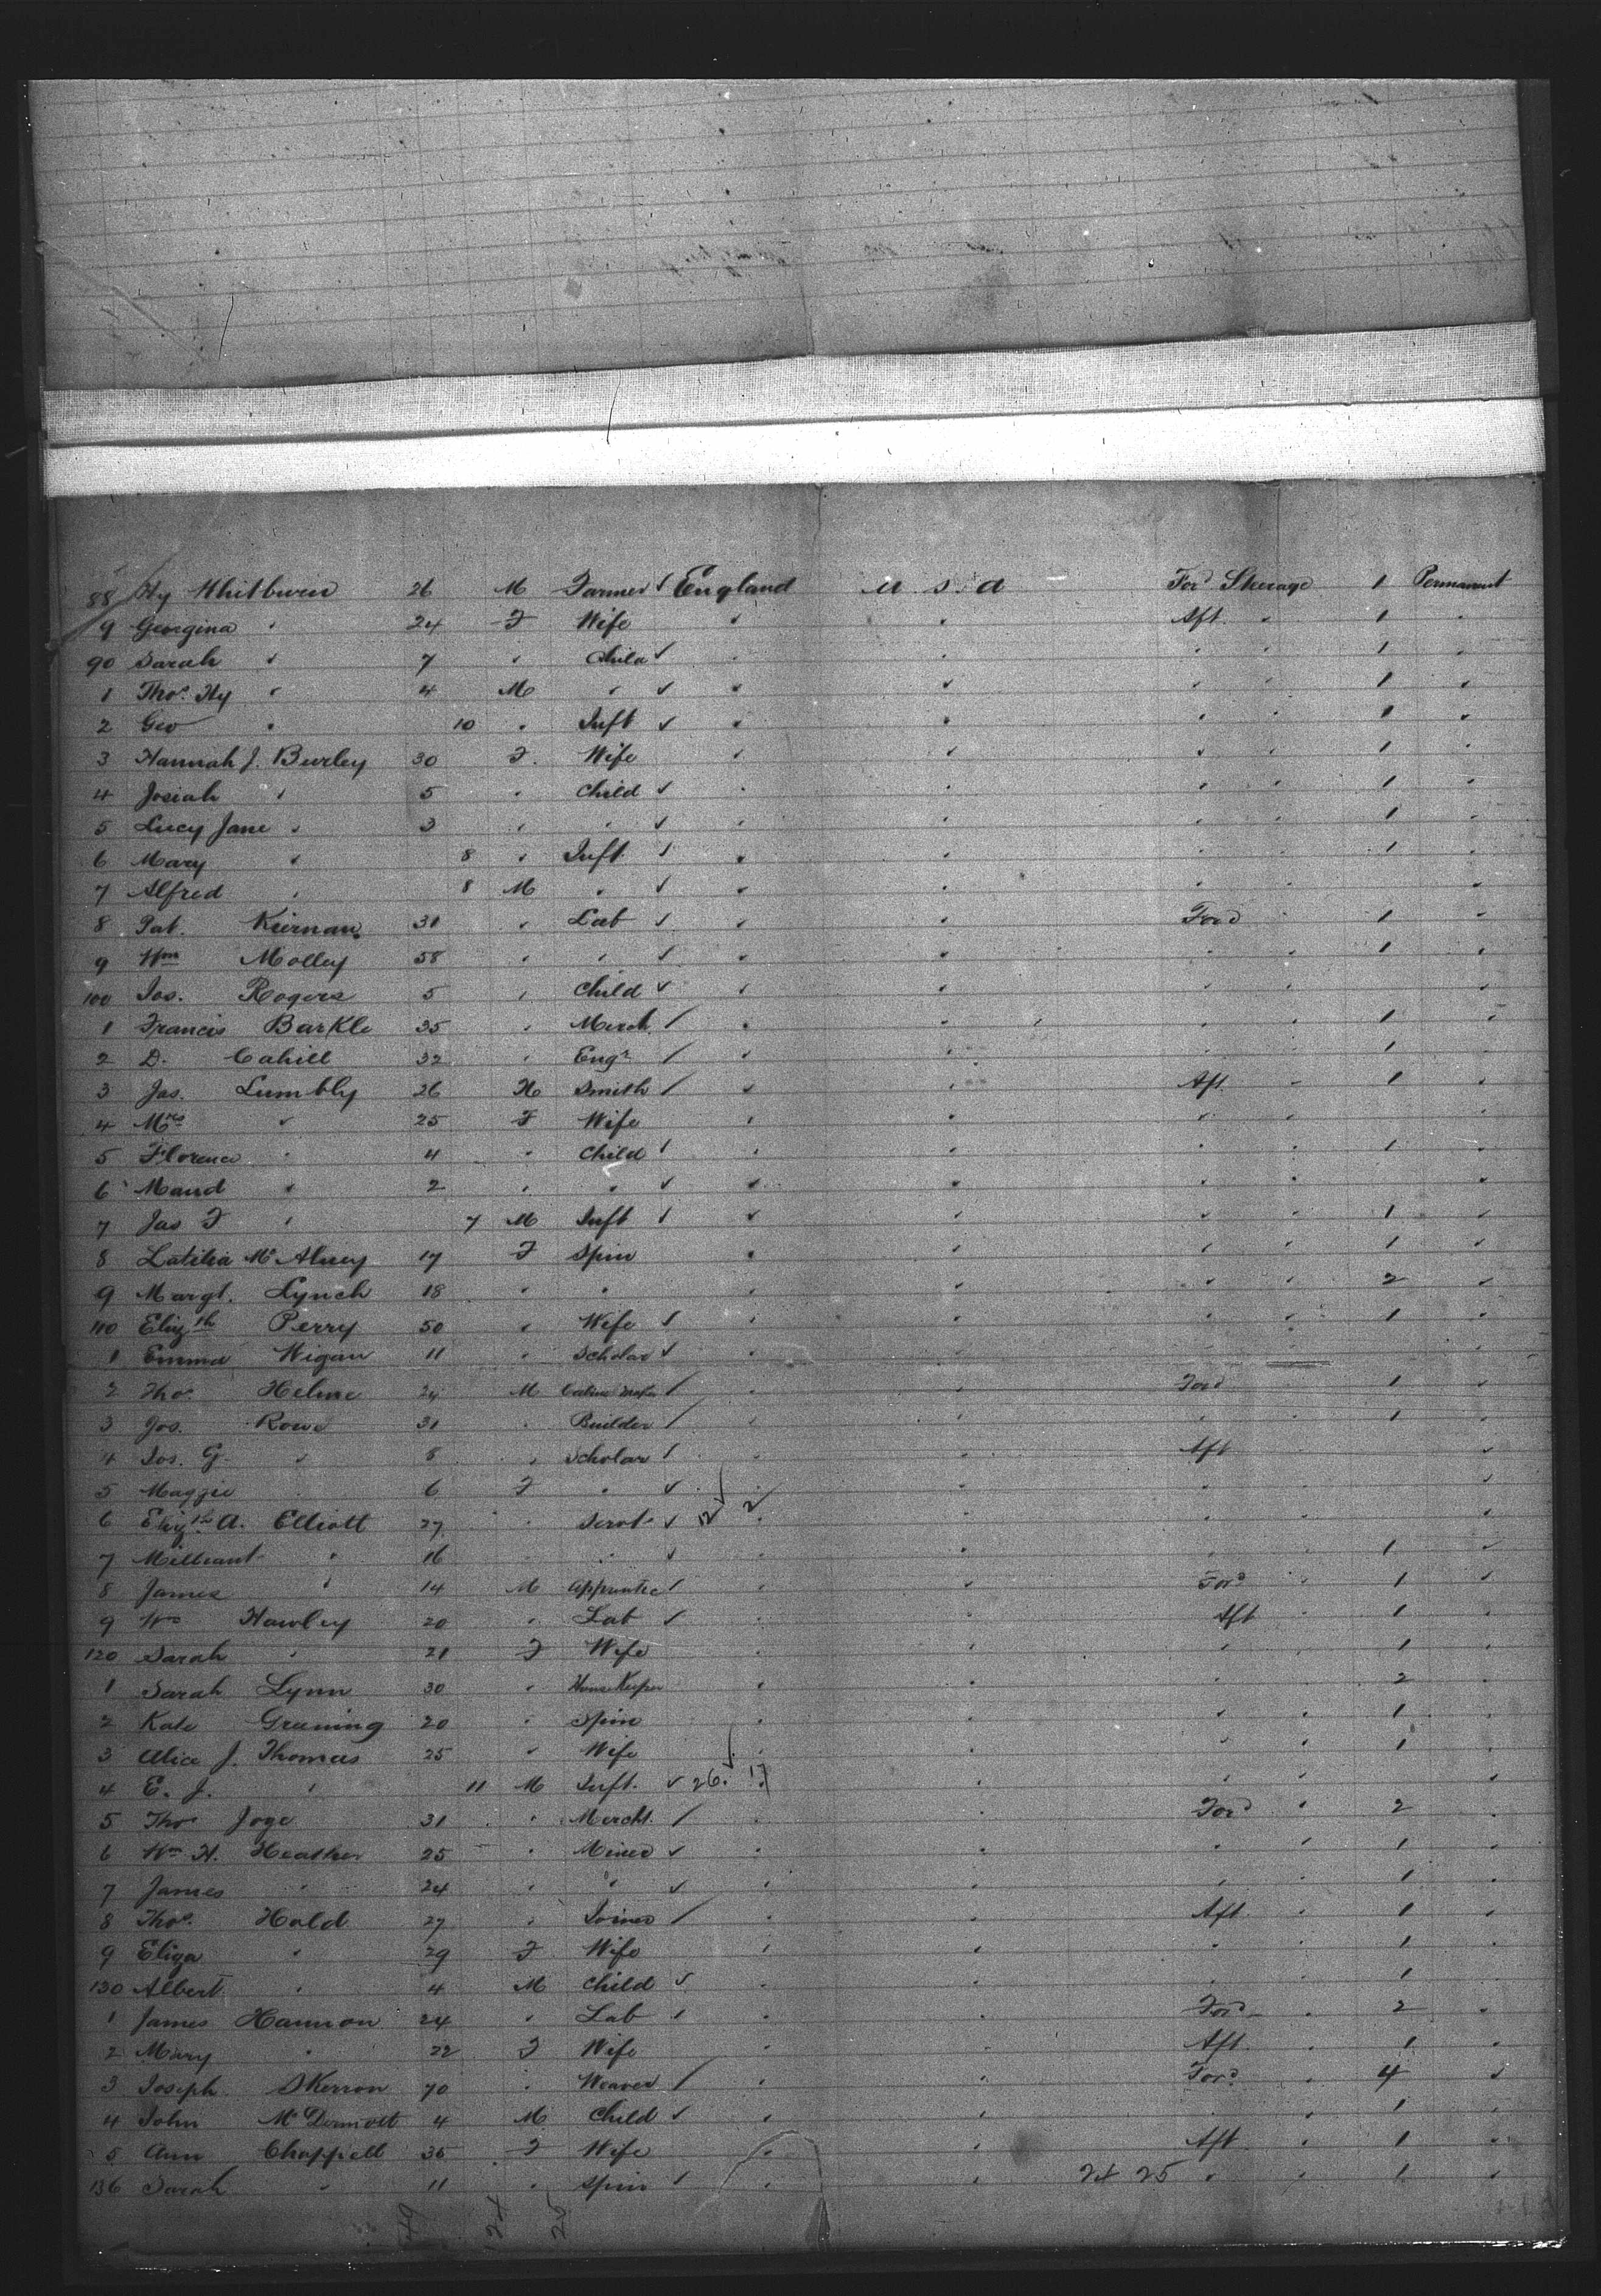 88 Hy Whitburn 26 M Farmer ✓ England U.S.A Ford Steerage 1 Permanent
9 Georgina " 24 F Wife " " Aft " 1 "
90 Sarah " 7 " Child ✓ " " " " 1 "
1 Thos. Hy " 4 M " ✓ " " " " 1 "
2 Geo " 10 " Inft ✓ " " " " 1 "
3 Hannah J. Burley 30 F. Wife " " " " 1 "
4 Josiah " 5 " Child ✓ " " " " 1 "
5 Lucy Jane " 3 " " ✓ " " " " 1 "
6 Mary " 8 " Inft ✓ " " " " 1 "
7 Alfred " 8 M " ✓ " " " " "
8 Pat. Kiernan 31 " Lab ✓ " " Ford " 1 "
9 Wm Molley 58 " " ✓ " " " " 1 "
100 Jos. Rogers 5 " Child ✓ " " " " "
1 Francis Barkle 35 " Merch. / " " " " 1 "
2 D. Cahill 32 " Engr / " " " " 1 "
3 Jas. Lumbly 26 M Smith / " " Aft " 1 "
4 Mrs " 25 F Wife " " " " "
5 Florence " 4 " Child ✓ " " " " 1 "
6 Maud " 2 " " ✓ " " " " "
7 Jas F " 7 M Inft ✓ " " " " 1 "
8 Latitia 17 F Spin " " " " 1 "
9 Margt. Lynch 18 " " " " " " 2 "
110 Elizth Perry 50 " Wife ✓ " " " " 1 "
1 Emma Wigan 11 " Scholar ✓ " " " " "
2 Thos. Helme 24 M / " " Ford " 1 "
3 Jos. Rowe 31 " Builder / " " " " 1 "
4 Jos. G. " 8 " Scholar ✓ " " Aft " "
5 Maggie " 6 F " ✓ " " " " "
6 Elizth A. Elliott 27 " Servt ✓ 2 2 " " " " "
7 Millicent " 16 " " ✓ " " " " 1 "
8 James " 14 M Apprentice ✓ " " Ford " 1 "
9 Wm Hawley 20 " Lab ✓ " " Aft " 1 "
120 Sarah " 21 F Wife " " " " 1 "
1 Sarah Lynn 30 " House Keeper " " " " 2 "
2 Kate Greening 20 " Spin " " " " 1 "
3 Alice J. Thomas 25 " Wife " " " " 1 "
4 E. J. " 11 M Inft. ✓ 26. 17 " " " "
5 Thos Joge 31 " Mercht. / " " Ford " 2 "
6 Wm H. Heather 25 " Miner ✓ " " " " 1 "
7 James " 24 " " ✓ " " " " 1 "
8 Thos. Hold 27 " Joiner / " " Aft " 1 "
9 Eliza " 29 F Wife " " " " 1 "
130 Albert " 4 M Child ✓ " " " " 1 "
1 James Hannon 24 " Lab ✓ " " Ford " 2 "
2 Mary " 22 F Wife " " Aft " 1 "
3 Joseph Skerron 70 " Weaver / " " Ford " 4 "
4 John McDermott 4 M Child ✓ " " " " 1 "
5 Ann Chappell 35 F Wife " " Aft " 1 "
136 Sarah " 11 " Spin ✓ " " 24 25 " " 1 "
49 24 25